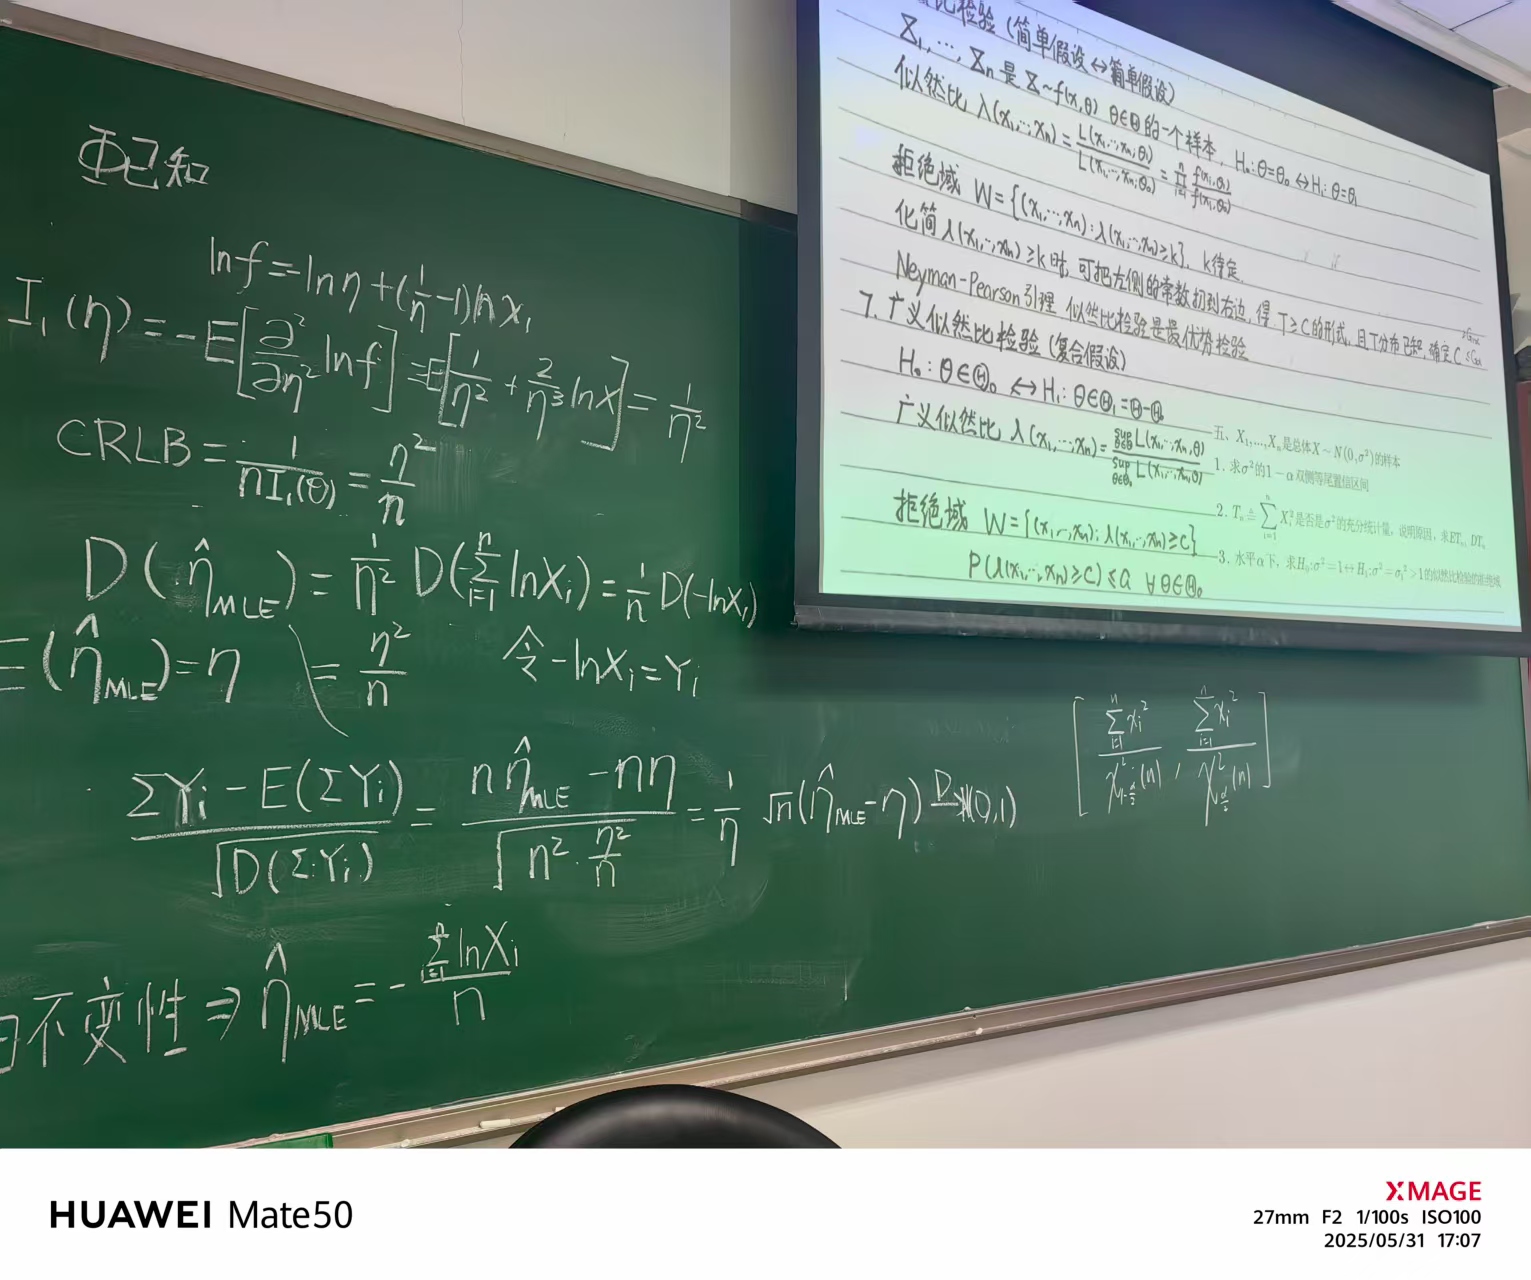 重已知
ln f = -ln η + (1/η - 1) ln x,
I₁(η) = -E[∂²/∂η² ln f] = E[1/η² + 2/η³ ln X] = 1/η²
CRLB = 1/(nI₁(θ)) = η²/n
D(η̂_MLE) = 1/n² D(-∑_{i=1}^n ln X_i) = 1/n D(-ln X_i)
E(η̂_MLE) = η = η²/n 令 -ln X_i = Y_i
(∑Y_i - E(∑Y_i))/√D(∑Y_i) = (nη̂_MLE - nη)/√(n²·η²/n) = 1/η √n(η̂_MLE - η) D→ N(0,1)
不变性 ⇒ η̂_MLE = -∑_{i=1}^n ln X_i / n
[∑_{i=1}^n x_i² / χ²_{1-α/2}(n), ∑_{i=1}^n x_i² / χ²_{α/2}(n)]
比检验 (简单假设↔简单假设)
X₁,…,Xₙ 是 X~f(x,θ) θ∈Θ 的一个样本, H₀:θ=θ₀ ↔ H₁:θ=θ₁
似然比 λ(x₁,…,xₙ) = L(x₁,…,xₙ;θ₁)/L(x₁,…,xₙ;θ₀) = ∏_{i=1}^n f(x_i,θ₁)/f(x_i,θ₀)
拒绝域 W={(x₁,…,xₙ):λ(x₁,…,xₙ)≥k}, k待定
化简λ(x₁,…,xₙ)≥k时,可把左侧的常数扔到右边,得 T≥C的形式,且T分布已知,确定C
Neyman-Pearson引理 似然比检验是最优势检验
7. 广义似然比检验 (复合假设)
H₀:θ∈Θ₀ ↔ H₁:θ∈Θ₁=Θ-Θ₀
广义似然比 λ(x₁,…,xₙ) = sup_{θ∈Θ} L(x₁,…,xₙ,θ) / sup_{θ∈Θ₀} L(x₁,…,xₙ,θ)
拒绝域 W={(x₁,…,xₙ):λ(x₁,…,xₙ)≥C}
P(λ(x₁,…,xₙ)≥C)≤α ∀θ∈Θ₀
五、X₁,…,Xₙ是总体X~N(0,σ²)的样本
1. 求σ²的1-α双侧等尾置信区间
2. Tₙ ≜ ∑_{i=1}^n X_i²是否是σ²的充分统计量,说明原因,求ETₙ, DTₙ
3. 水平α下,求H₀:σ²=1↔H₁:σ²=σ₁²>1的似然比检验的拒绝域
HUAWEI Mate50
XMAGE
27mm F2 1/100s ISO100
2025/05/31 17:07